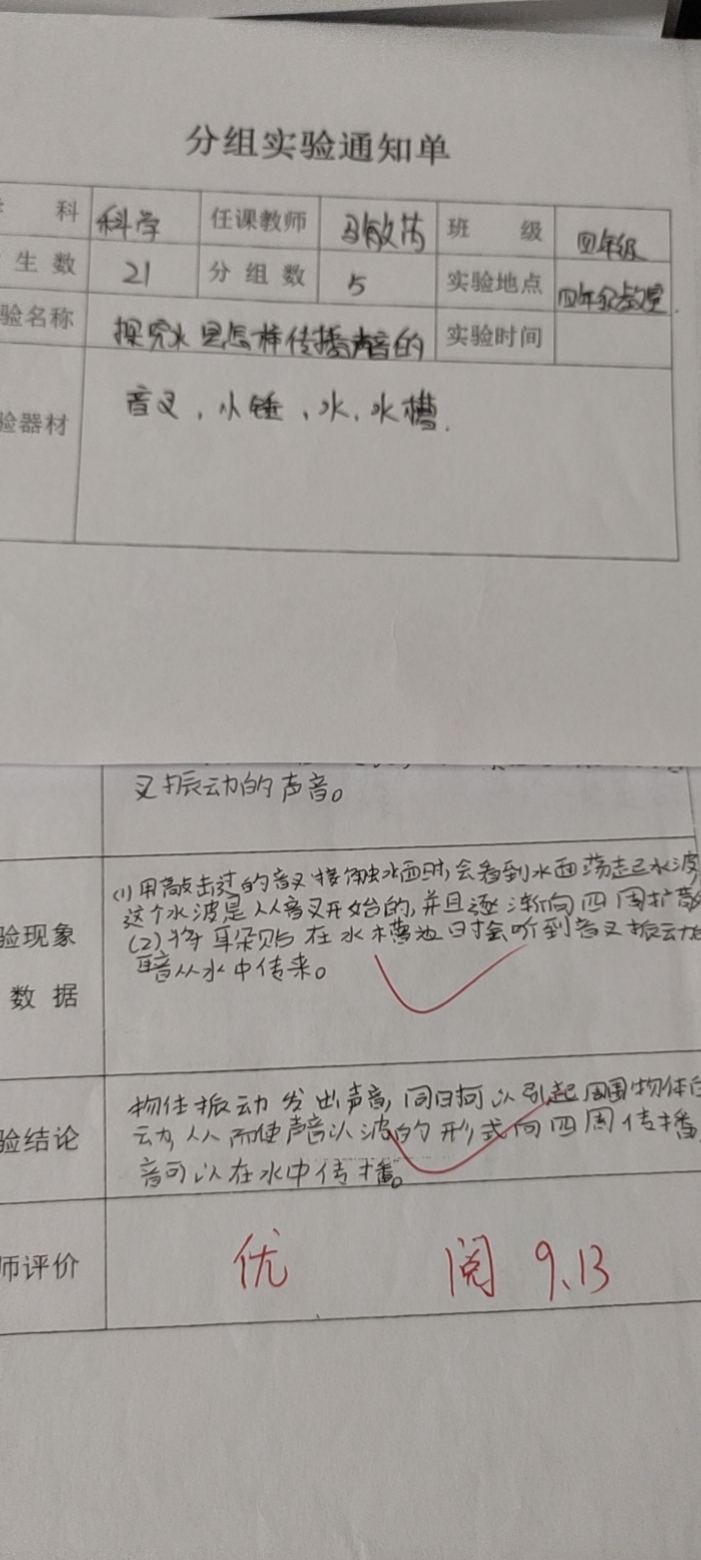 分组实验通知单
科 科学 任课教师 马敏芮 班 级 四年级
生数 21 分组数 5 实验地点 四年级教室.
验名称 探究水是怎样传播声音的 实验时间
验器材 音叉、小锤、水、水槽.
叉振动的声音。
(1)用敲击过的音叉接触水面时,会看到水面荡起水波
这个水波是从音叉开始的,并且逐渐向四周扩散
验现象 (2)将耳朵贴在水槽边时会听到音叉振动的
数据 声音从水中传来。
物体振动发出声音,同时可以引起周围物体的
验结论 动,从而使声音以波的形式向四周传播
音可以在水中传播。
师评价 优 阅 9.13